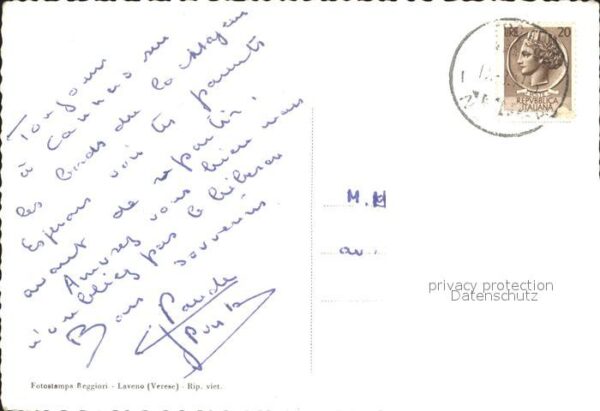 Toujours
à Cannero sur
les bords du lac Majeur
Esperons voir tes parents
avant de repartir.
Amusez vous bien mais
n'oubliez pas le
Bons souvenirs
LIRE 20
POSTE
REPVBBLICA
ITALIANA
M.
av.
privacy protection
Datenschutz
Fotostampa Reggiori - Laveno (Verese) - Rip. viet.